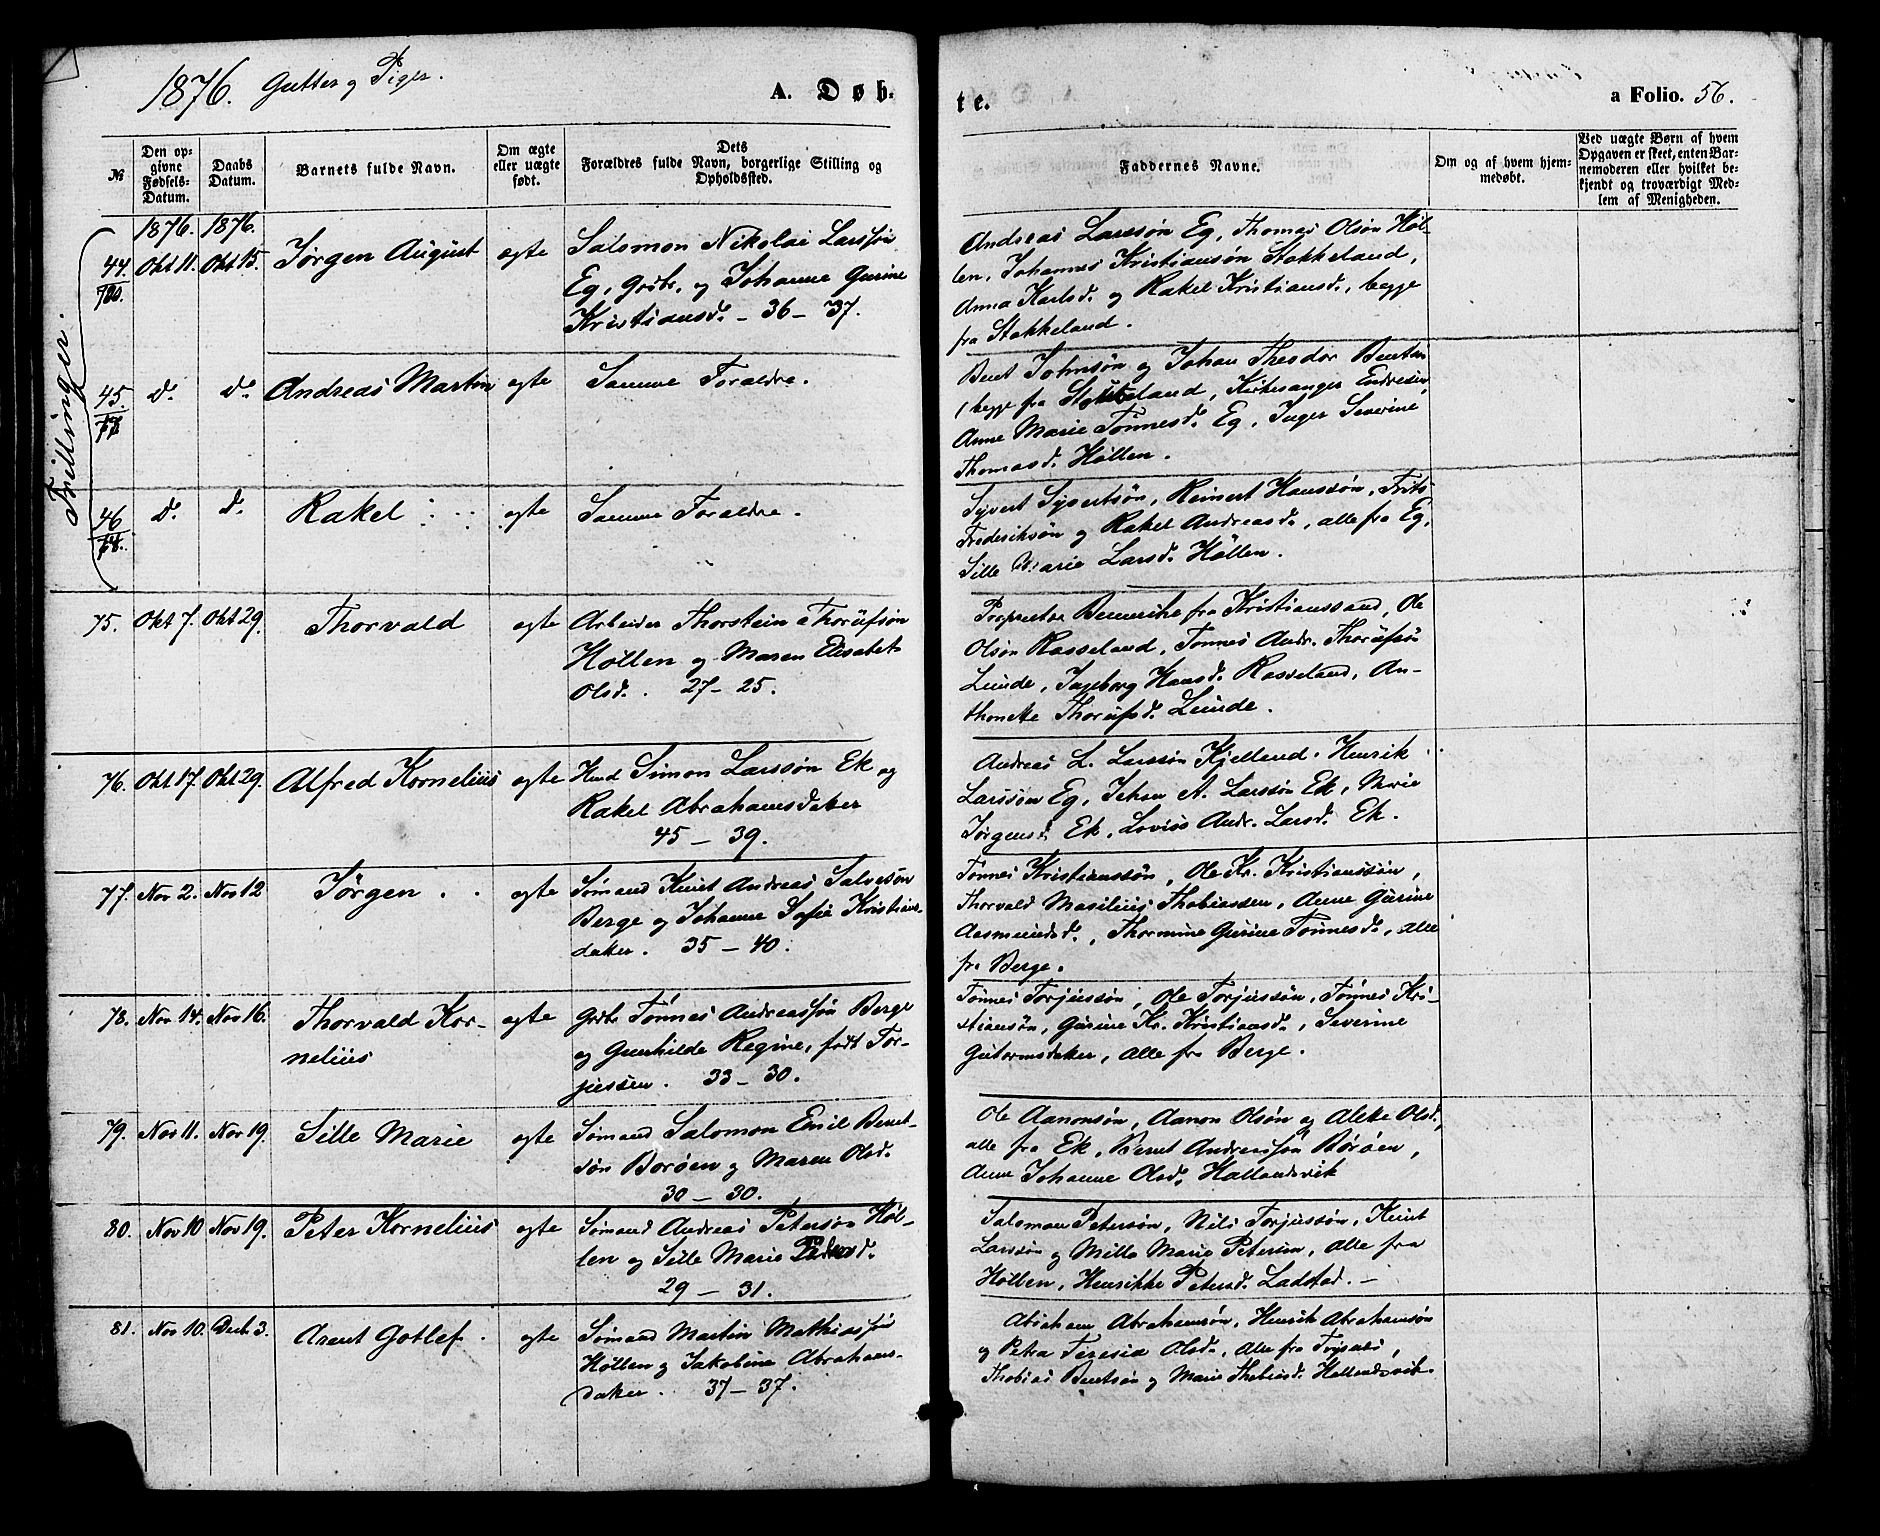 1876. Gutter og Piger.
A. Døb-
te.
a Folio. 56.
№
Den op-
givne
Fødsels-
Datum.
Daabs
Datum.
Barnets fulde Navn.
Om ægte
eller uægte
født.
Dets
Forældres fulde Navn, borgerlige Stilling og
Opholdssted.
Faddernes Navne.
Om og af hvem hjem-
medøbt.
Ved uægte Børn af hvem
Opgaven er skeet, enten Bar-
nemoderen eller hvilket be-
kjendt og troværdigt Med-
lem af Menigheden.
Trillinger.
1876. 1876.
44. Okt 11. Okt 15. Jørgen August egte
Salomon Nikolai Larssøn
Eg, Grdbr. og Johanne Gurine
Kristiansd. - 36 - 37.
Andreas Larssøn Eg, Thomas Olsøn Høl-
len, Johannes Kristiansøn Stokkeland,
Anna Karlsd. og Rakel Kristiansd., begge
fra Stokkeland.
45. d. d. Andreas Martin egte Samme Forældre.
Bent Johnsøn og Johan Theodor Bentsøn
begge fra Stokkeland, Kirkesanger Endresen,
Anne Marie Tønnesd. Eg, Inger Severine
Thomasd. Høllen.
46 d. d. Rakel egte Samme Forældre.
Syvert Syvertsøn, Reinert Hanssøn, Frits
Frederiksøn og Rakel Andreasd., alle fra Eg,
Sille Marie Larsd. Høllen.
75. Okt 7. Okt 29. Thorvald egte
Arbeider Thorstein Thorüfsøn
Høllen og Maren Elisabet
Olsd. 27 - 25.
Proprietær Bennike fra Kristianssand, Ole
Olsøn Rosseland, Tønnes Andr. Thorüfsøn
Lunde, Ingeborg Hansd. Rosseland, An-
thonette Thorüfsd. Lunde.
76. Okt 17. Okt 29. Alfred Kornelius egte
Hmd Simon Larssøn Ek og
Rakel Abrahamsdatter
45 - 39.
Andreas L. Larssøn Kjelland, Henrik
Larssøn Eg, Johan A. Larssøn Ek, Marie
Jørgensd. Ek, Lovise Andr. Larsd. Ek.
77. Nov 2. Nov 12 Jørgen egte
Sømand Knut Andreas Salvesøn
Berge og Johanne Sofie Kristians-
datter. 35 - 40.
Tønnes Kristianssøn, Ole Kr. Kristianssøn,
Thorvald Masilius Thobiassen, Anne Gurine
Aasmundsd., Thormine Gurine Tønnesd., alle
fra Berge.
78. Nov 14. Nov 16. Thorvald Kor-
nelius
egte
Grdbr Tønnes Andreassøn Berge
og Gunhilde Regine, født Tor-
jussen. 33 - 30.
Tønnes Torjussøn, Ole Torjussøn, Tønnes Kri-
stiansøn, Gurine Kr. Kristiansd., Severine
Gutormsdatter, alle fra Berge.
79. Nov 11. Nov 19. Sille Marie egte
Sømand Salomon Emil Bernt-
søn Borøen og Maren Olsd.
30 - 30.
Ole Aanonsøn, Aanon Olsøn og Aleke Olsd.,
alle fra Ek, Bernt Andreassøn Borøen,
Anne Johanne Olsd. Hallandsvik
80. Nov 10 Nov 19. Peter Kornelius egte
Sømand Andreas Petersøn Høl-
len og Sille Marie Pedersd.
29 - 31.
Salomon Petersøn, Nils Torjussøn, Knut
Larssøn og Mille Marie Petersen, alle fra
Høllen, Henrikke Petersd. Ladstad. -
81. Nov 10. Decb. 3. Arent Gotlef egte
Sømand Martin Mathiassøn
Høllen og Jakobine Abrahams-
datter. 37 - 37.
Abraham Abrahamsøn, Henrik Abrahamsøn
og Petra Teresia Olsd., alle fra
Thobias Bentsøn og Marie Thobiasd. Hollandsvik.